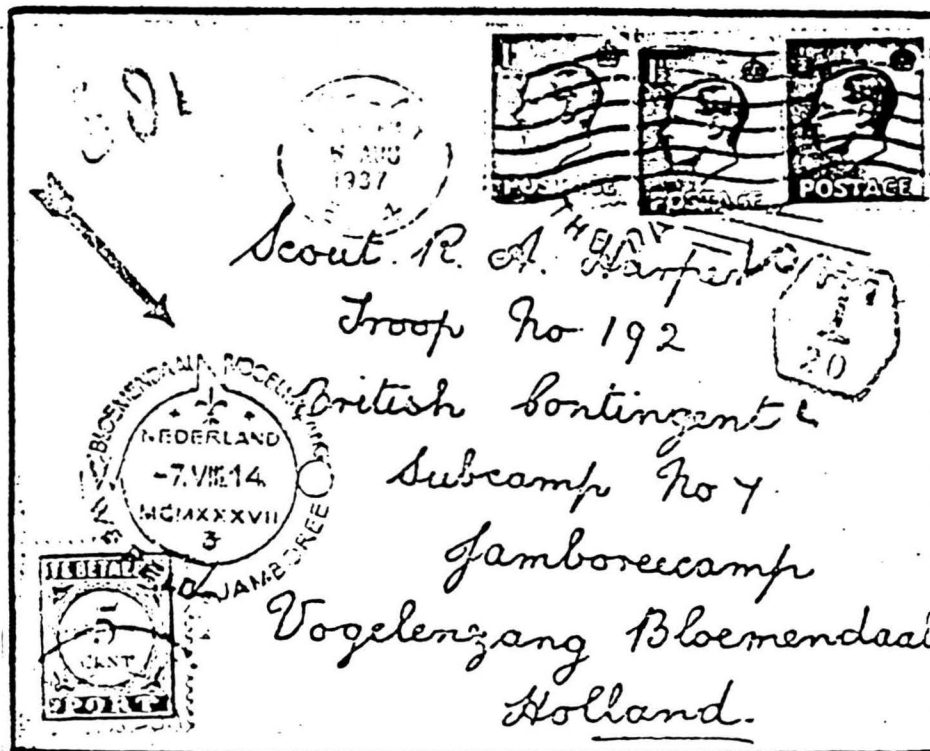 AUG
1937
POSTAGE
POSTAGE
Scout. R. A. Harper
Troop No 192
British Contingent
Subcamp No 7
Jamboreecamp
Vogelenzang Bloemendaal
Holland.
T
20
BLOEMENDAAL VOGELENZANG
NEDERLAND
-7.VIII.14
MCMXXXVII
3
WERELD JAMBOREE
TE BETALEN
5
CENT
PORT